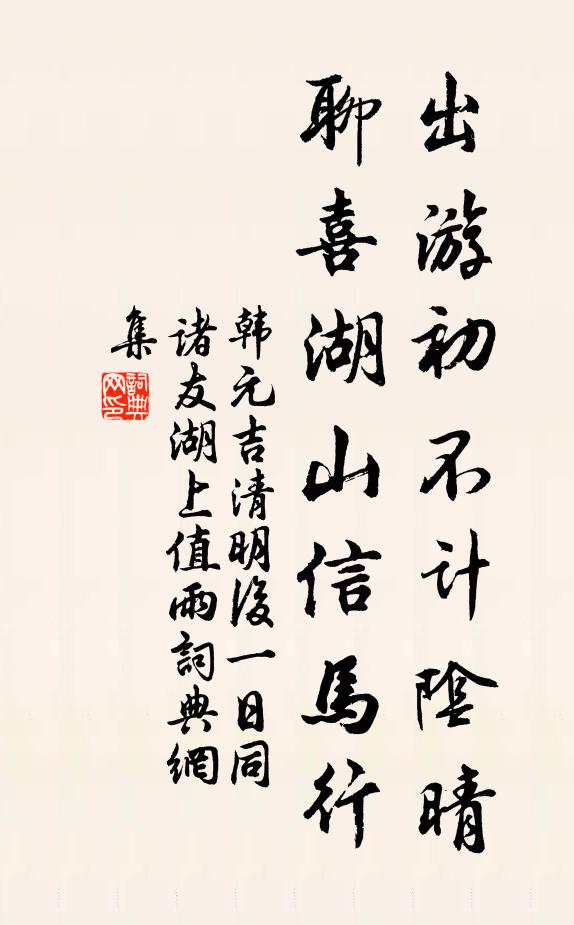 出游初不计陰晴
聊喜湖山信馬行
韩元吉清明後一日同
诸友湖上值雨詞典網
集
詞典网印